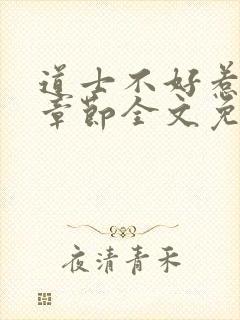 道士不好惹
章节全文免
夜清青禾